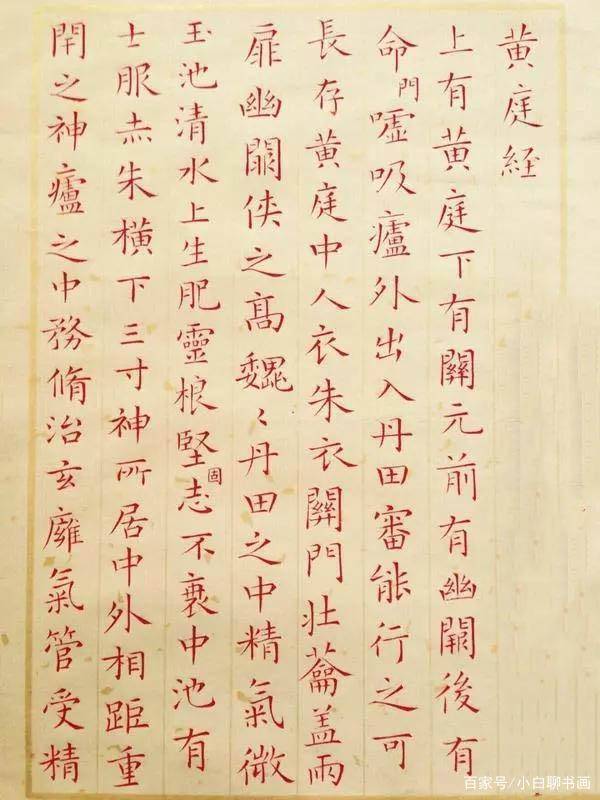 黄庭経
上有黄庭下有關元前有幽闕後有
命門噓吸廬外出入丹田審能行之可
長存黄庭中人衣朱衣關門壮蘥盖兩
扉幽闕俠之髙巍〻丹田之中精氣微
玉池清水上生肥靈根堅固志不衰中池有
士服赤朱横下三寸神所居中外相距重
閇之神廬之中務脩治玄廱氣管受精
百家号/小白聊书画